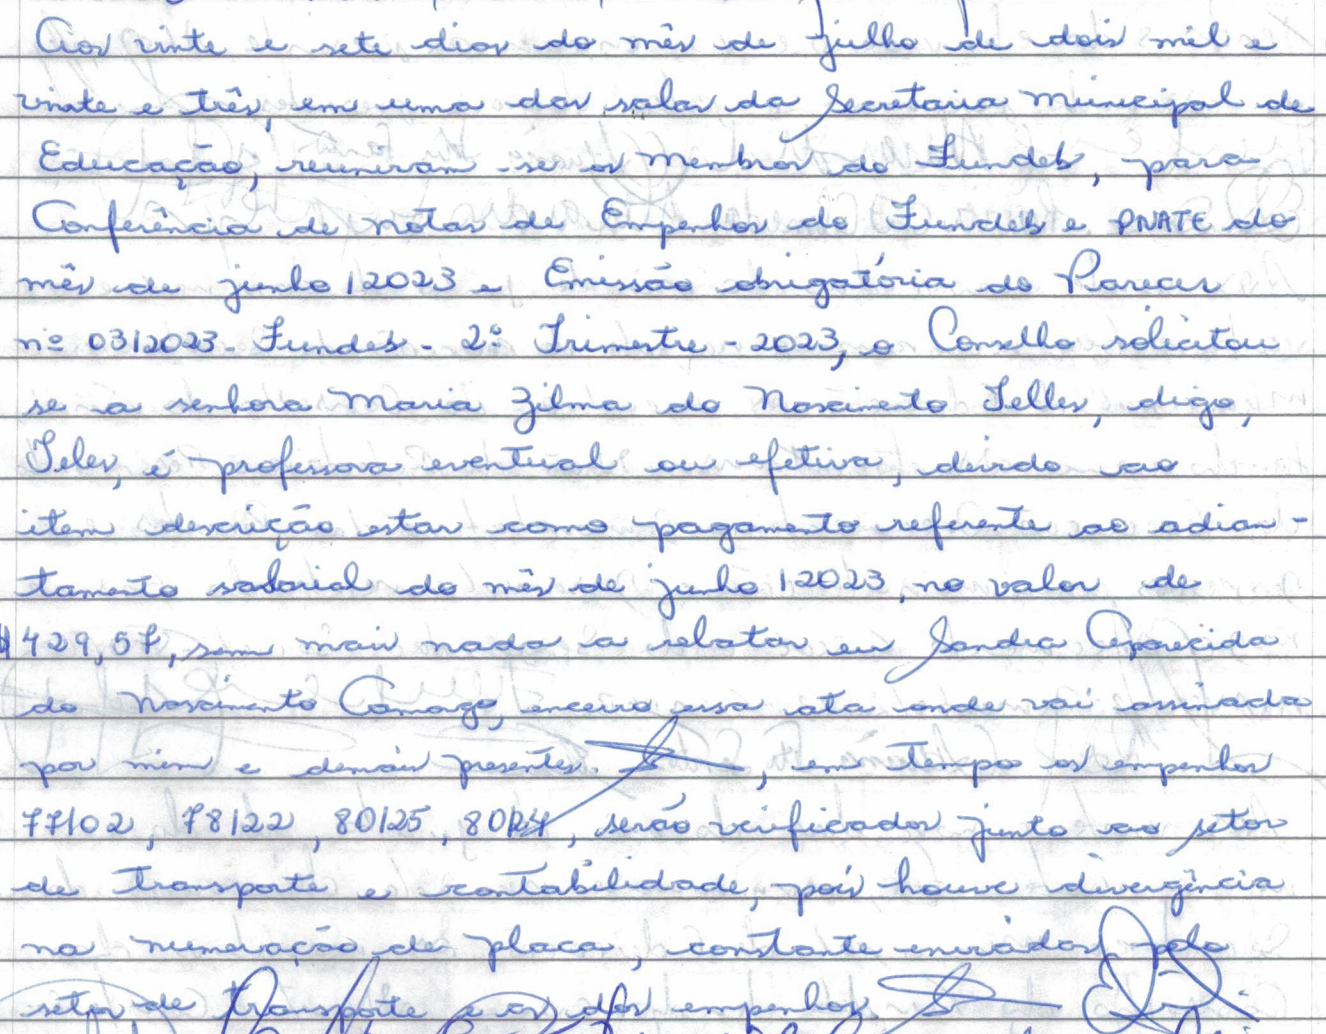 Aos vinte e sete dias do mês de julho de dois mil e
vinte e três, em uma das salas da Secretaria Municipal de
Educação, reuniram-se os Membros do Fundeb, para
Conferência de notas de Empenhos do Fundeb e PNATE do
mês de junho/2023 e Emissão obrigatória do Parecer
nº 03/2023 - Fundeb - 2º Trimestre - 2023, o Conselho solicitou
se a senhora Maria Zilma do Nascimento Telles, digo,
Teles, é professora eventual ou efetiva, devido ao
item descrição estar como pagamento referente ao adian-
tamento salarial do mês de junho/2023, no valor de
429,57, sem mais nada a relatar eu Sandra Aparecida
do Nascimento Camargo, encerro essa ata onde vai assinada
por mim e demais presentes. , em tempo os empenhos
77/02, 78/22, 80/25, 80/24, serão verificados junto ao setor
de transporte e contabilidade, pois houve divergência
na numeração de placa, constante enviados pelo
setor de transporte e os dos empenhos.